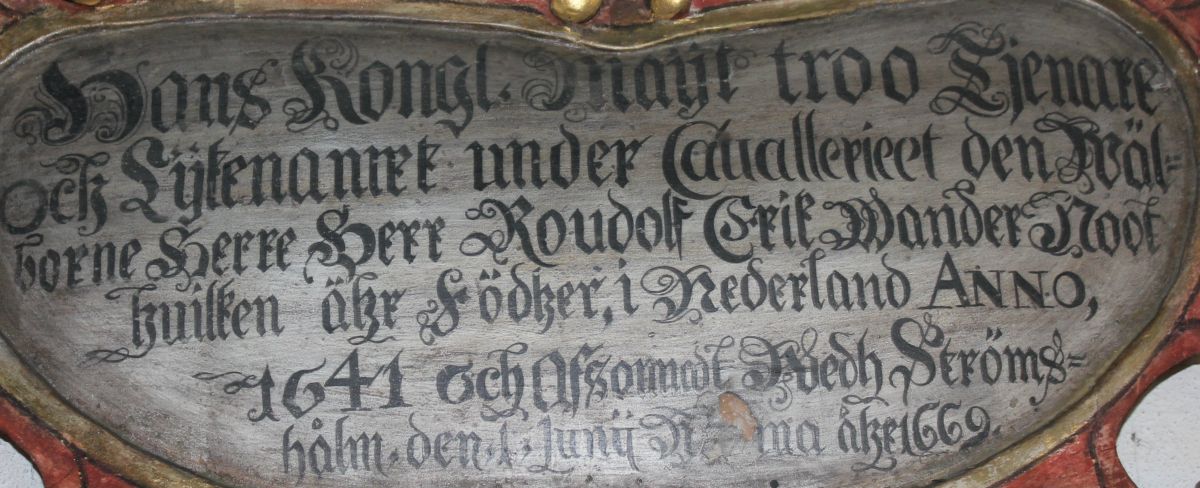 Hans Kongl. Maÿt troo Tjenare
Och Lÿtenamt under Cauallerieet den Wäl-
borne Herre Herr Roudolf Erik Wander Noot
huilken ähr Födher, i Nederland ANNO,
1641 och Afsomnedt Wedh Ströms-
hålm. den. 1. Junÿ åhr 1669.